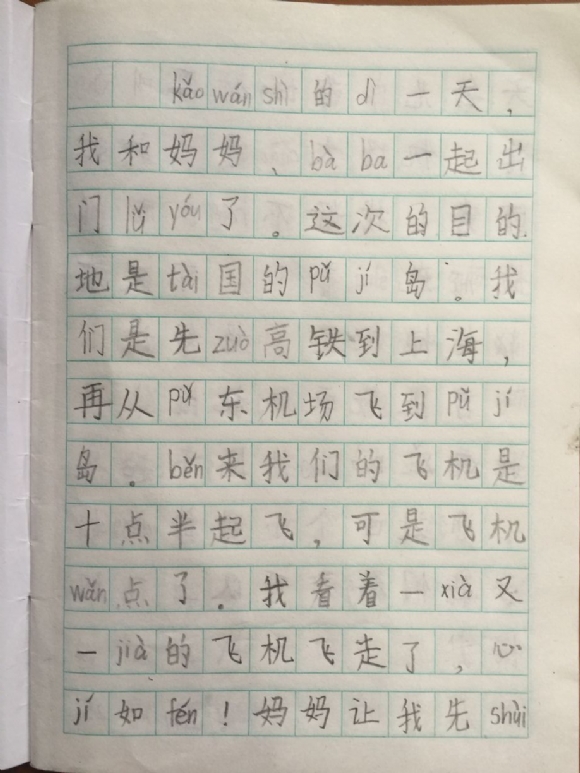 kǎo wán shì 的 dì 一天，
我和妈妈、bà ba 一起出
门 lǚ yóu 了。这次的目的
地是 tài 国的 pǔ jí 岛。我
们是先 zuò 高铁到上海，
再从 pǔ 东机场飞到 pǔ jí
岛。běn 来我们的飞机是
十点半起飞，可是飞机
wǎn 点了。我看着一 xià 又
一 jià 的飞机飞走了，心
jí 如 fén！妈妈让我先 shùi